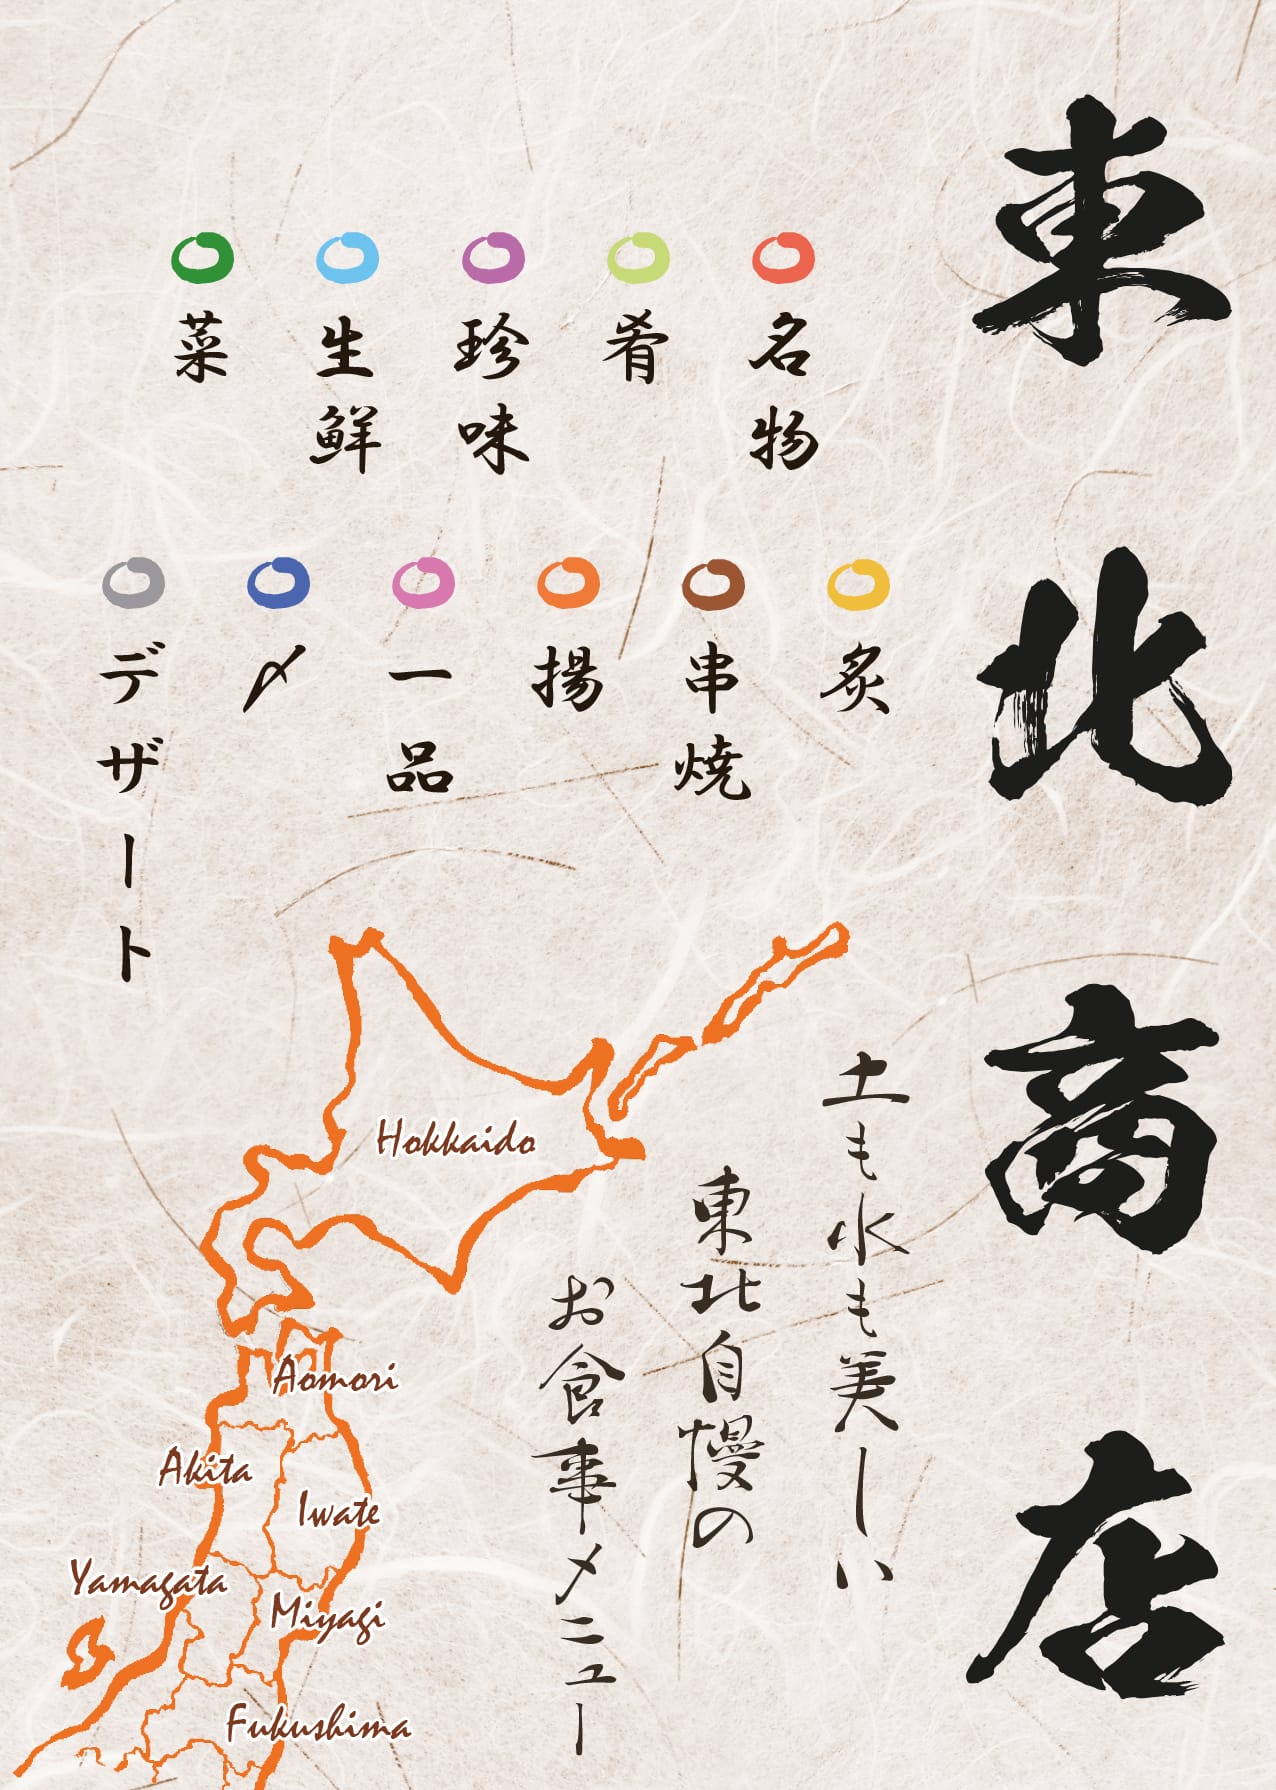 東北商店
名物
肴
珍味
生鮮
菜
炙
串焼
揚
一品
〆
デザート
土も水も美しい
東北自慢の
お食事メニュー
Hokkaido
Aomori
Akita
Iwate
Yamagata
Miyagi
Fukushima